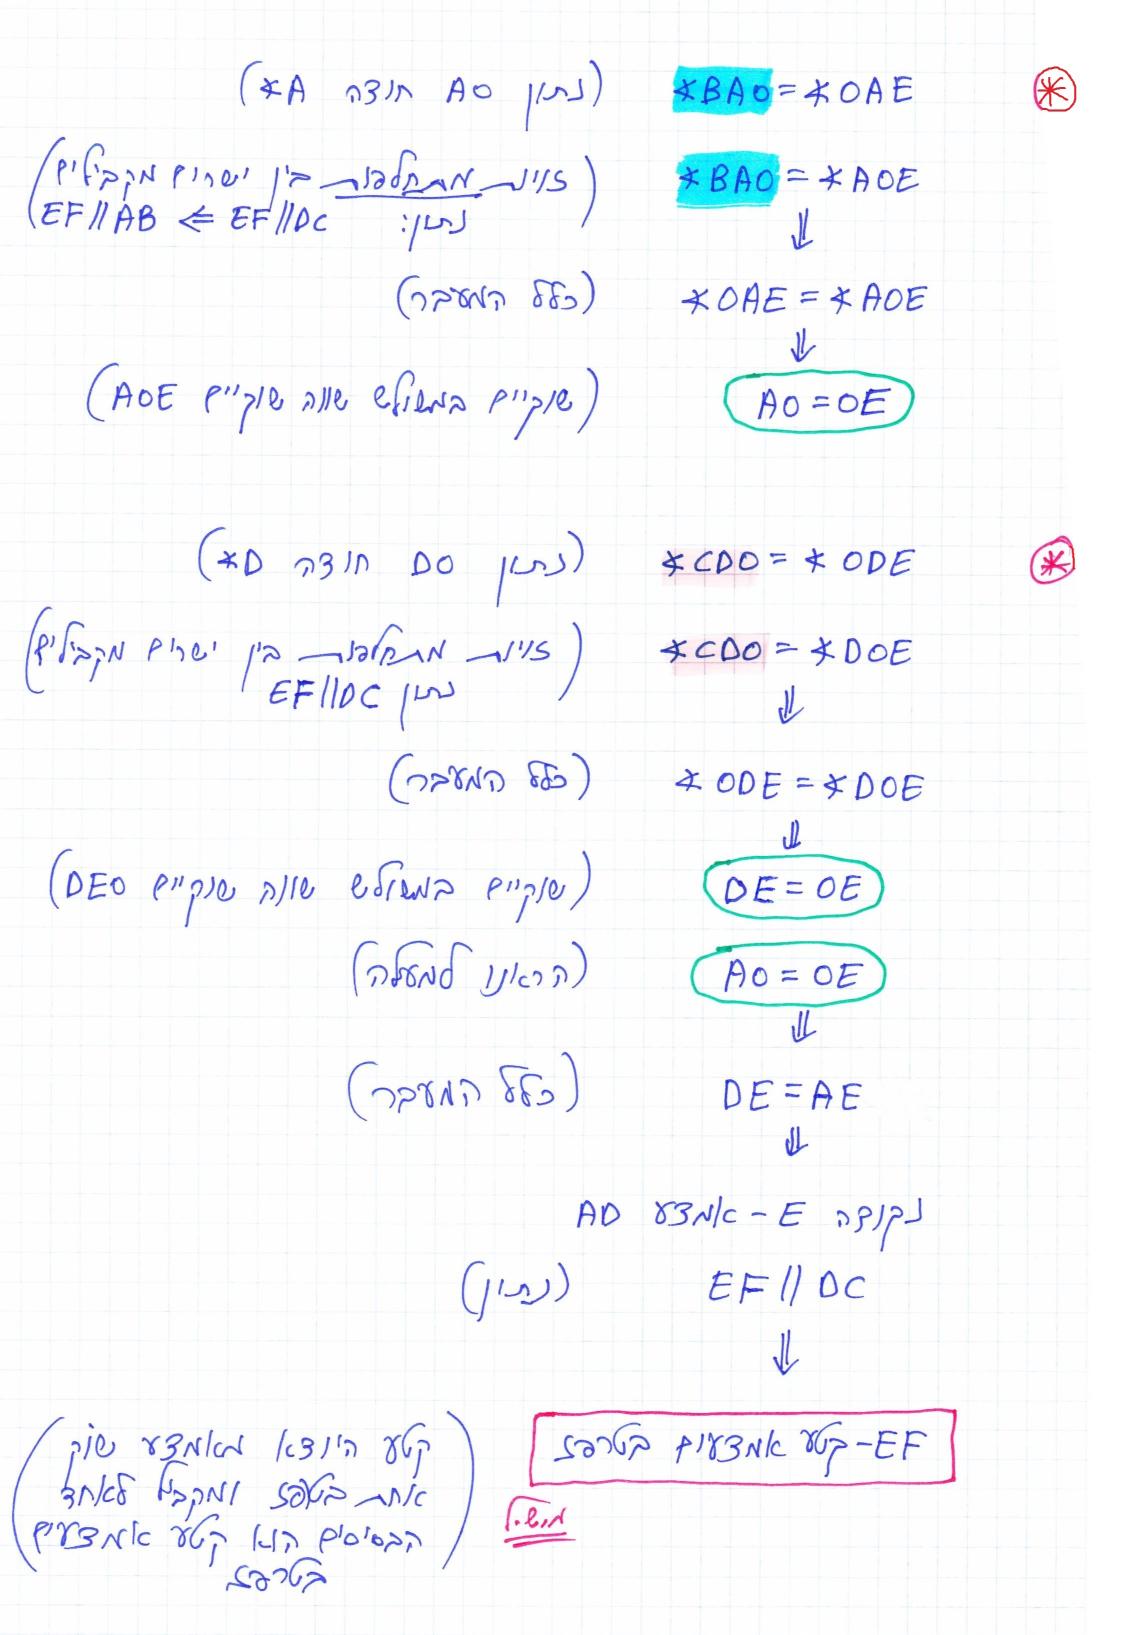 ∢BAO = ∢OAE (נתון AO חוצה ∢A)
∢BAO = ∢AOE (זוויות מתחלפות בין ישרים מקבילים
נתון: EF//DC ⇐ EF//AB)
⇓
∢OAE = ∢AOE (כלל המעבר)
⇓
AO = OE (שוקיים במשולש שווה שוקיים AOE)
∢CDO = ∢ODE (נתון DO חוצה ∢D)
∢CDO = ∢DOE (זוויות מתחלפות בין ישרים מקבילים
נתון EF//DC)
⇓
∢ODE = ∢DOE (כלל המעבר)
⇓
DE = OE (שוקיים במשולש שווה שוקיים DEO)
AO = OE (הראנו למעלה)
⇓
DE = AE (כלל המעבר)
⇓
נקודה E - אמצע AD
EF // DC (נתון)
⇓
EF - קטע אמצעים בטרפז (קטע היוצא מאמצע שוק
אחת בטרפז ומקביל לאחד
הבסיסים הוא קטע אמצעים
בטרפז)
מ.ש.ל